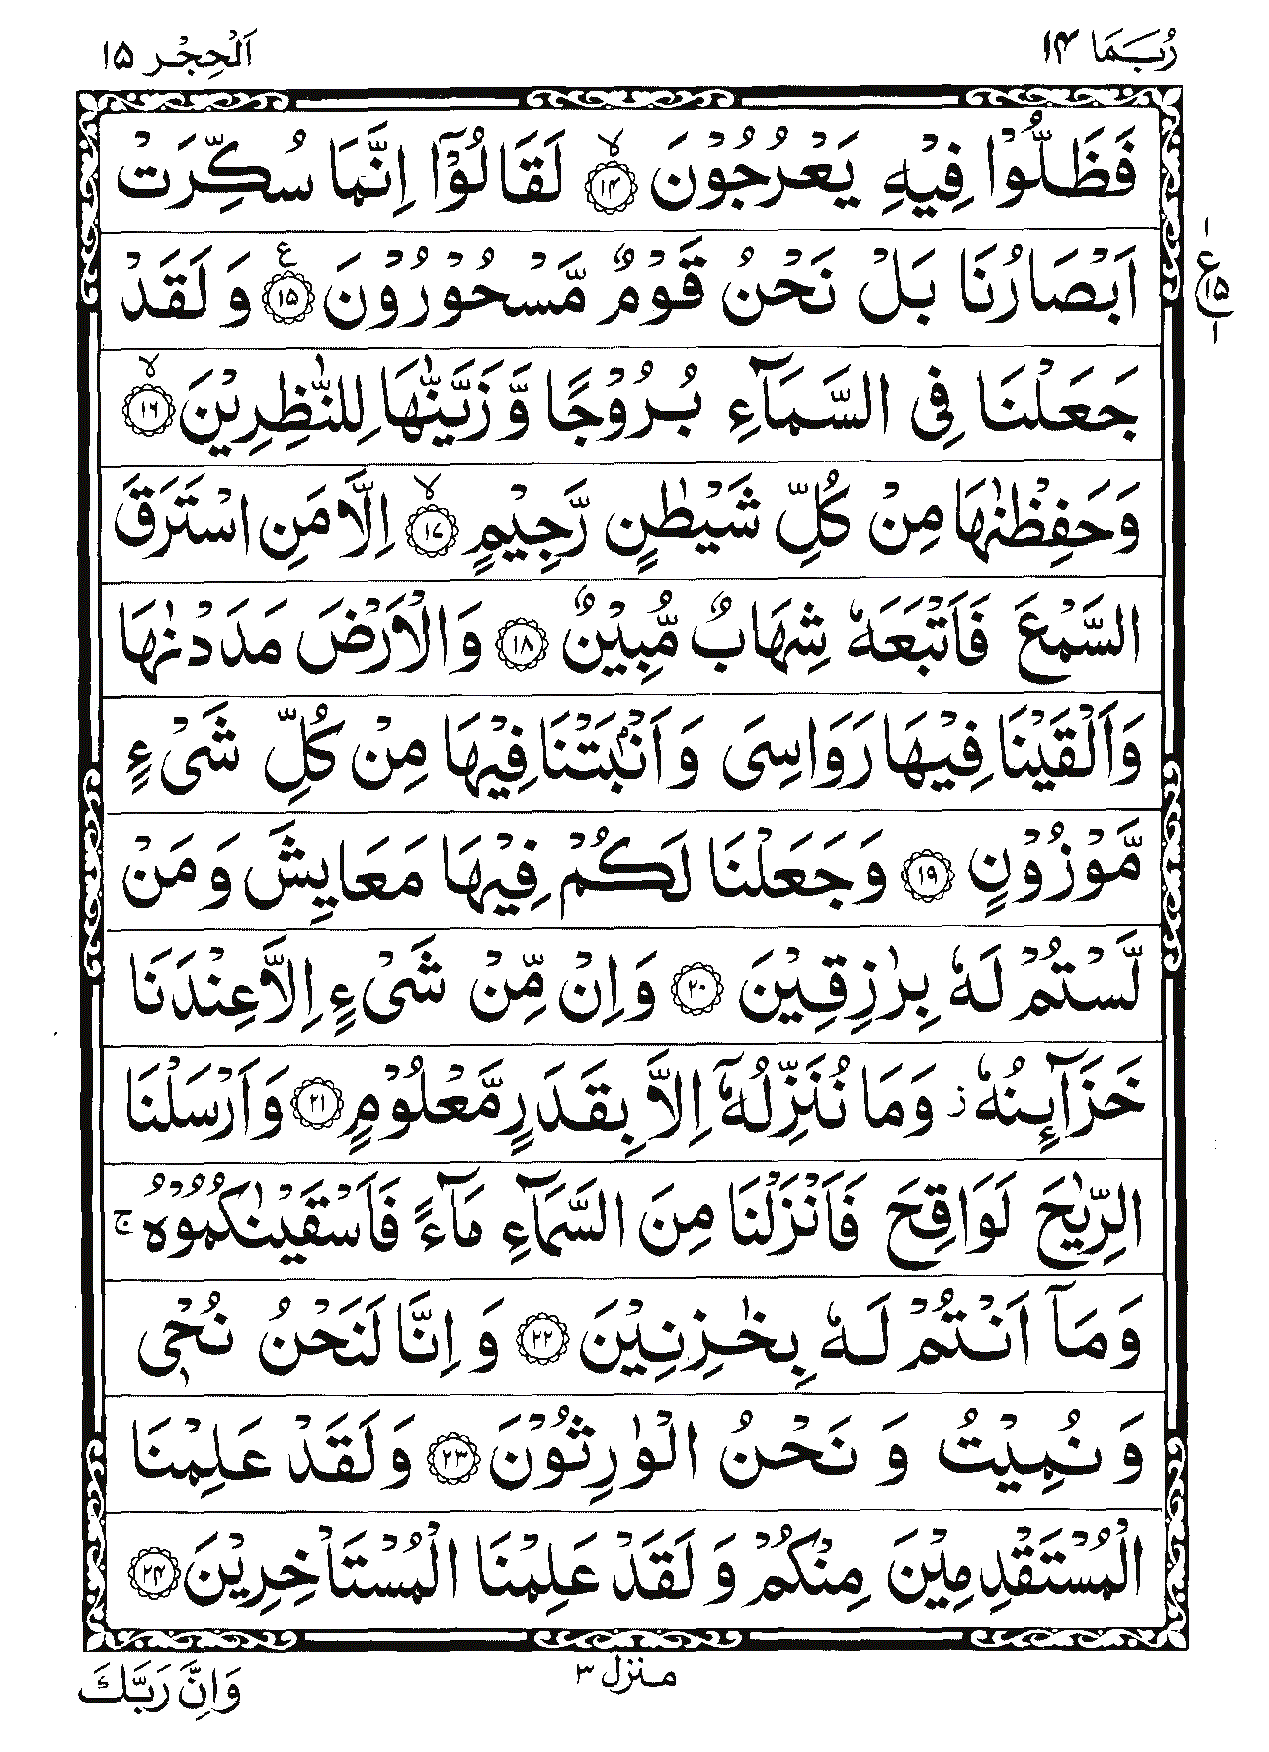 رُبَمَا ١٤
اَلْحِجْر ١٥
فَظَلُّوْا فِيْهِ يَعْرُجُوْنَ ۙ‏﴿۱۴﴾ لَقَالُوْۤا اِنَّمَا سُكِّرَتْ
اَبْصَارُنَا بَلْ نَحْنُ قَوْمٌ مَّسْحُوْرُوْنَ ﴿۱۵﴾ ع وَلَقَدْ
ع ١ ١٥ ١
جَعَلْنَا فِى السَّمَآءِ بُرُوْجًا وَّزَيَّنّٰهَا لِلنّٰظِرِيْنَ ۙ﴿۱۶﴾
وَحَفِظْنٰهَا مِنْ كُلِّ شَيْطٰنٍ رَّجِيْمٍ ۙ﴿۱۷﴾ اِلَّا مَنِ اسْتَرَقَ
السَّمْعَ فَاَتْبَعَهٗ شِهَابٌ مُّبِيْنٌ ﴿۱۸﴾ وَالْاَرْضَ مَدَدْنٰهَا
وَاَلْقَيْنَا فِيْهَا رَوَاسِىَ وَاَنْۢبَتْنَا فِيْهَا مِنْ كُلِّ شَىْءٍ
مَّوْزُوْنٍ ﴿۱۹﴾ وَجَعَلْنَا لَكُمْ فِيْهَا مَعَايِشَ وَمَنْ
لَّسْتُمْ لَهٗ بِرٰزِقِيْنَ ﴿۲۰﴾ وَاِنْ مِّنْ شَىْءٍ اِلَّا عِنْدَنَا
خَزَآئِنُهٗ ز وَمَا نُنَزِّلُهٗۤ اِلَّا بِقَدَرٍ مَّعْلُوْمٍ ﴿۲۱﴾ وَاَرْسَلْنَا
الرِّيٰحَ لَوَاقِحَ فَاَنْزَلْنَا مِنَ السَّمَآءِ مَآءً فَاَسْقَيْنٰكُمُوْهُ ۚ
وَمَاۤ اَنْتُمْ لَهٗ بِخٰزِنِيْنَ ﴿۲۲﴾ وَاِنَّا لَنَحْنُ نُحْىٖ
وَنُمِيْتُ وَنَحْنُ الْوٰرِثُوْنَ ﴿۲۳﴾ وَلَقَدْ عَلِمْنَا
الْمُسْتَقْدِمِيْنَ مِنْكُمْ وَلَقَدْ عَلِمْنَا الْمُسْتَاْخِرِيْنَ ﴿۲۴﴾
منزل ٣
وَاِنَّ رَبَّكَ